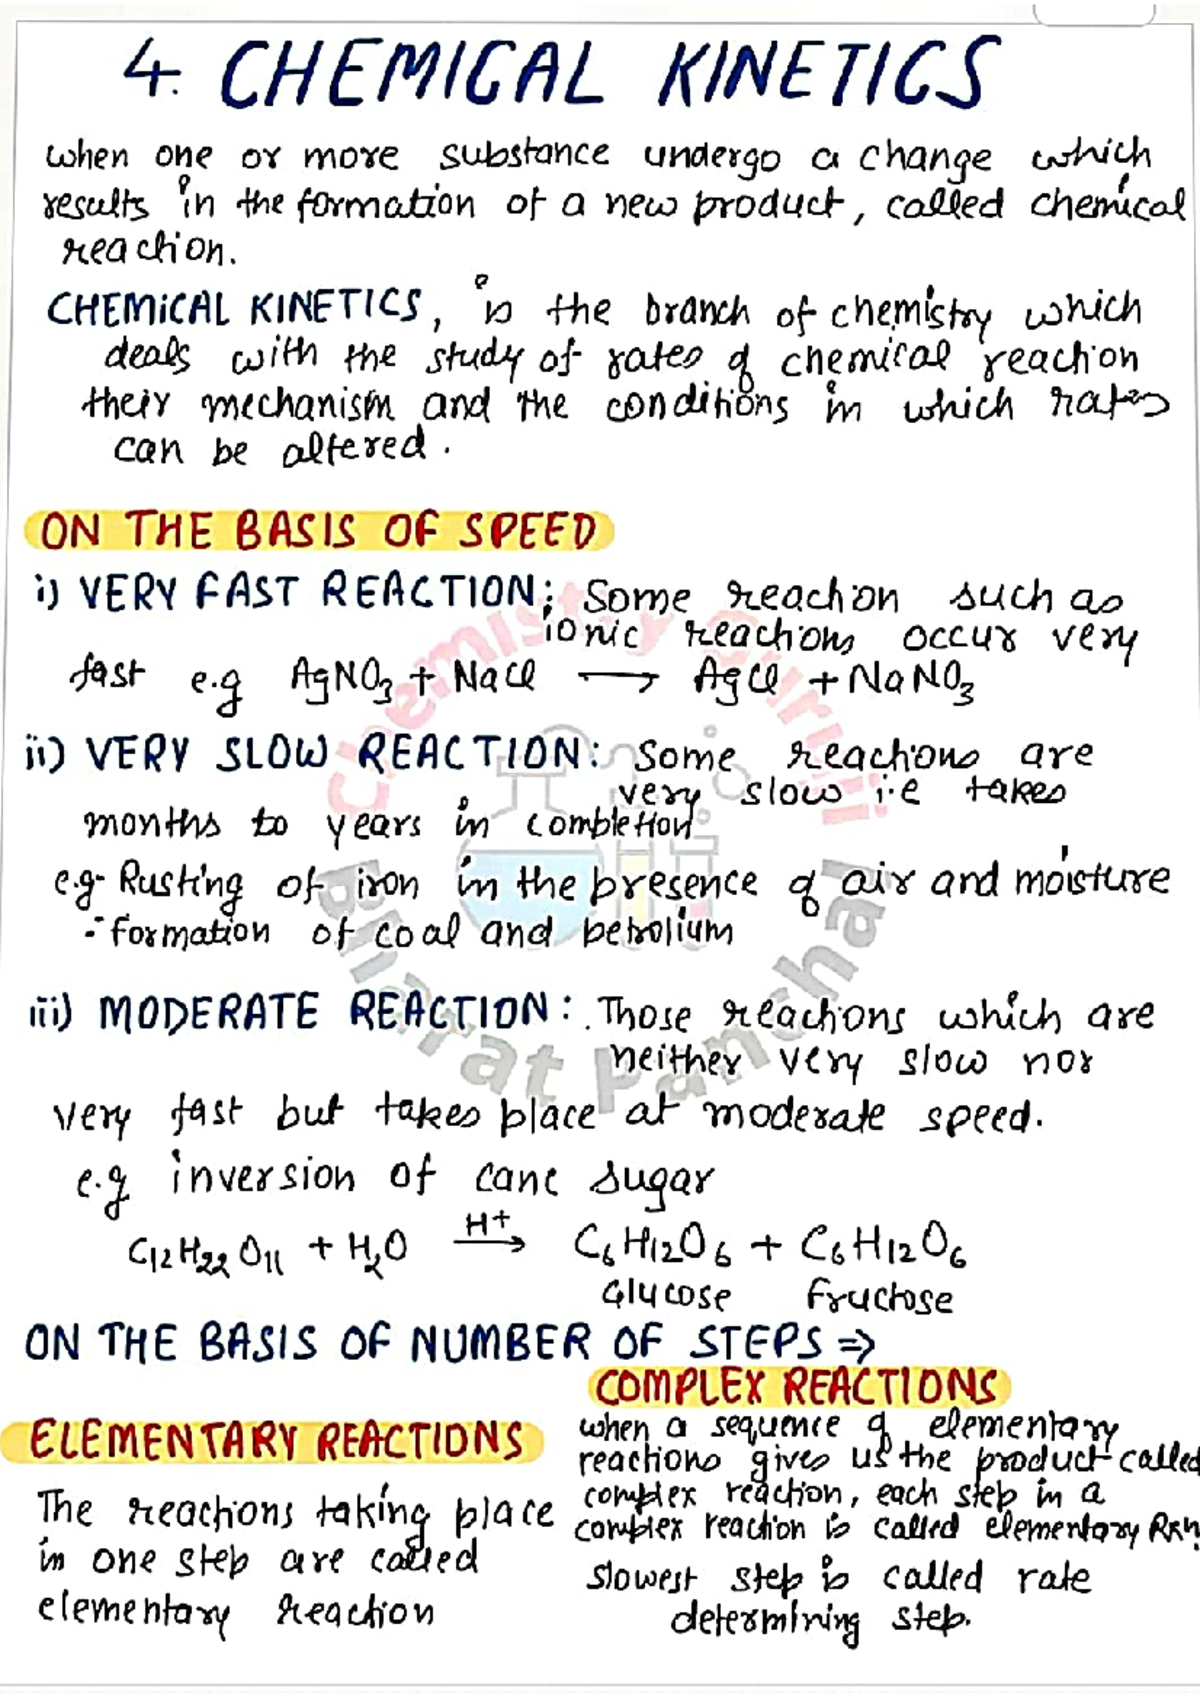 4. CHEMICAL KINETICS
when one or more substance undergo a change which
results in the formation of a new product, called chemical
reaction.
CHEMICAL KINETICS, is the branch of chemistry which
deals with the study of rates of chemical reaction
their mechanism and the conditions in which rates
can be altered.
ON THE BASIS OF SPEED
i) VERY FAST REACTION: Some reaction such as
ionic reactions occur very
fast e.g AgNO₃ + NaCl ⟶ AgCl + NaNO₃
ii) VERY SLOW REACTION: Some reactions are
very slow i.e takes
months to years in completion
e.g- Rusting of iron in the presence of air and moisture
- formation of coal and petrolium
iii) MODERATE REACTION: Those reactions which are
neither very slow nor
very fast but takes place at moderate speed.
e.g inversion of cane sugar
C₁₂H₂₂O₁₁ + H₂O —H⁺→ C₆H₁₂O₆ + C₆H₁₂O₆
Glucose fructose
ON THE BASIS OF NUMBER OF STEPS ⇒
ELEMENTARY REACTIONS
The reactions taking place
in one step are called
elementary reaction
COMPLEX REACTIONS
when a sequence of elementary
reactions gives us the product called
complex reaction, each step in a
complex reaction is called elementary Rxn.
slowest step is called rate
determining step.
Chemistry Guruji
Bharat Panchal